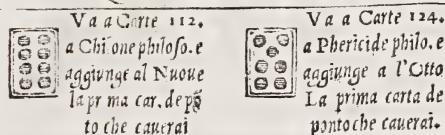 Va a Carte 112.
a Chilone philoso. e
aggiunge al Nuoue
la prima car. de pō
to che cauerai
Va a Carte 124.
a Phericide philo. e
aggiunge a l'Otto
La prima carta de
ponto che cauerai.